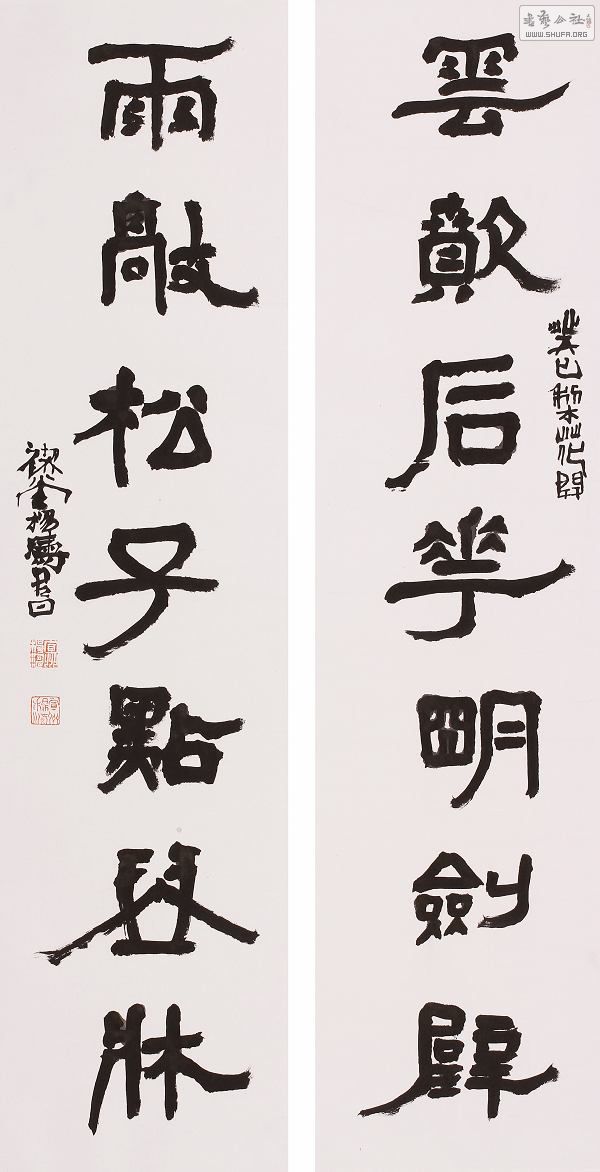 書藝公社
WWW.SHUFA.ORG
雲歕石華明劍壁
癸巳梨花開
雨敲松子點琴牀
楊濤書